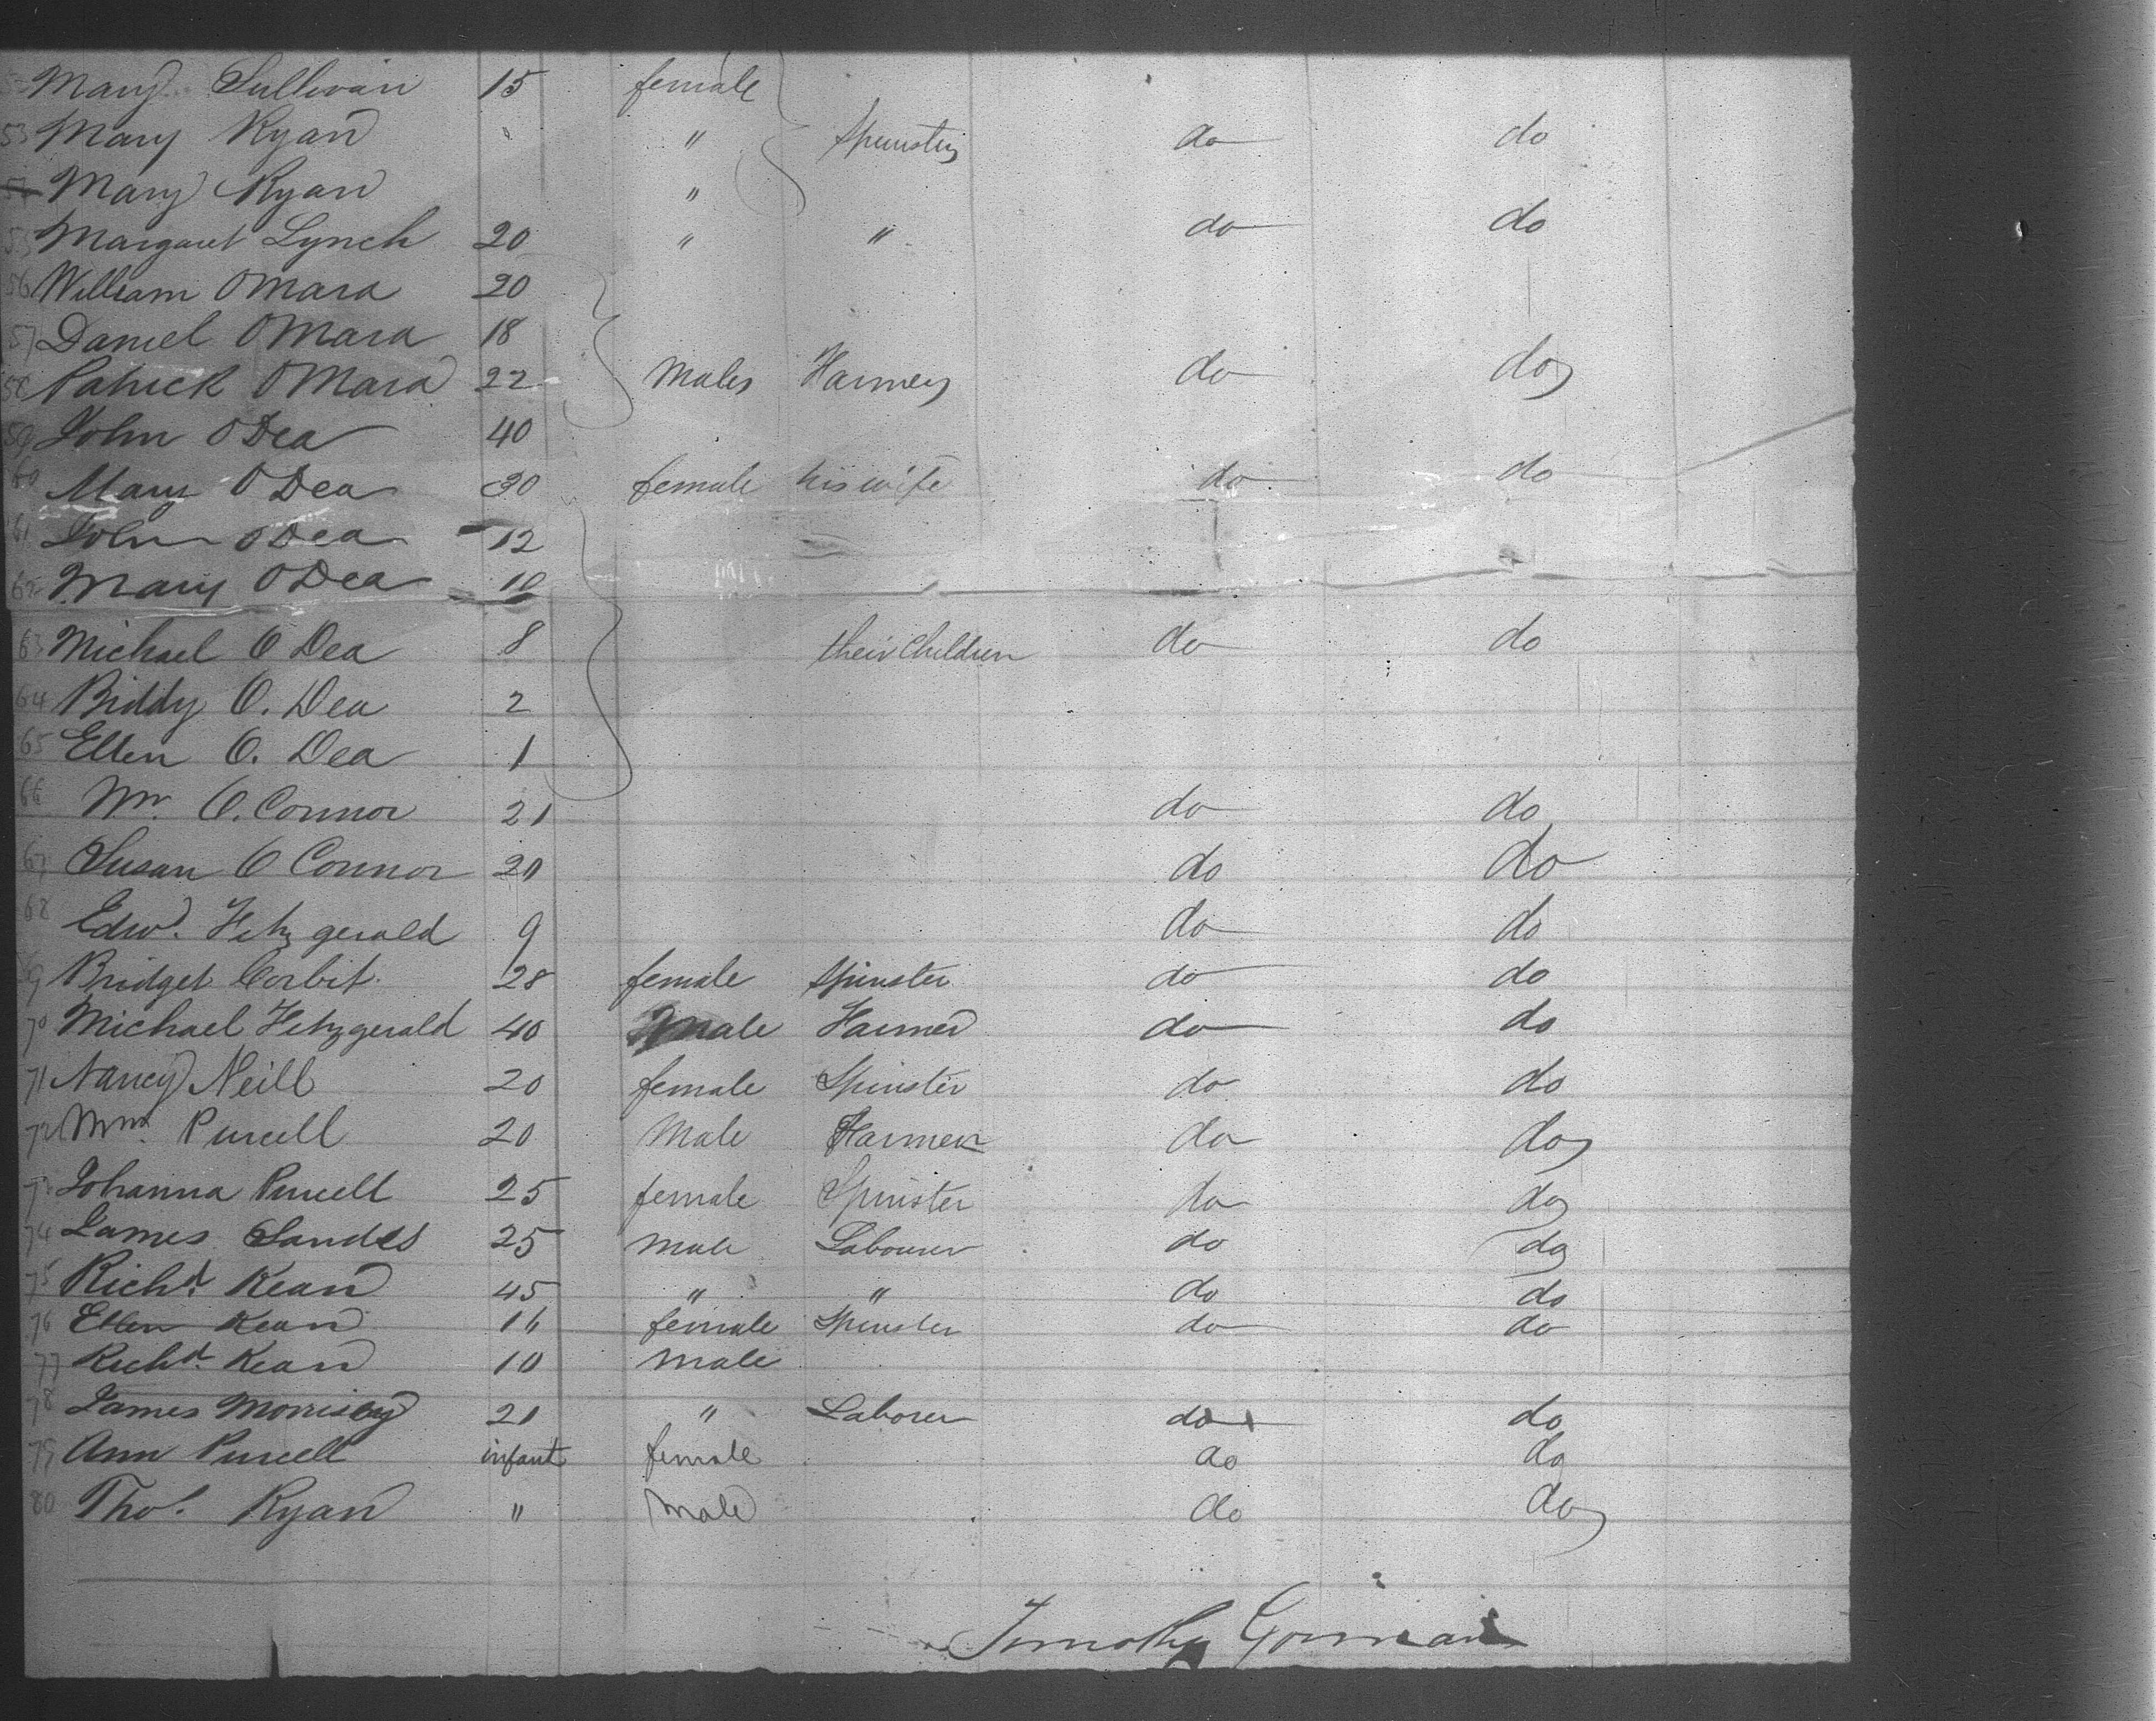 Mary Sullivan 15 female
53 Mary Ryan " Spinsters do do
54 Mary Ryan "
55 Margaret Lynch 20 " " do do
56 William OMara 20
57 Daniel OMara 18
58 Patrick OMara 22 Males Farmers do do
59 John ODea 40
60 Mary ODea 30 female his wife do do
61 John ODea 12
62 Mary ODea 10
63 Michael O Dea 8 their Children do do
64 Biddy O. Dea 2
65 Ellen O. Dea 1
66 Wm. O. Connor 21 do do
67 Susan O Connor 20 do do
68 Edwd. Fitzgerald 9 do do
69 Bridget Corbit 28 female Spinster do do
70 Michael Fitzgerald 40 Male Farmer do do
71 Nancy Neill 20 female Spinster do do
72 Wm. Purcell 20 Male Farmer do do
73 Johanna Purcell 25 female Spinster do do
74 James Landes 25 Male Labourer do do
75 Richd. Kean 45 " " do do
76 Ellen Kean 16 female Spinster do do
77 Richd. Kean 10 Male
78 James Morrisey 21 " Laborer do do
79 Ann Purcell infant female do do
80 Thos. Ryan " Male do do
Timothy Gorman